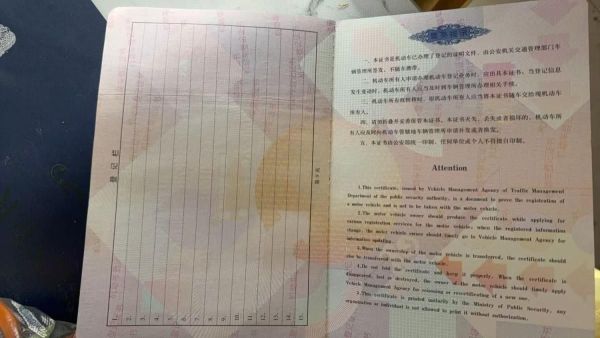 登记栏
1.
2.
3.
4.
5.
6.
7.
8.
9.
10.
11.
12.
13.
14.
15.
重要提示
一、本证书是机动车已办理了登记的证明文件，由公安机关交通管理部门车
辆管理所签发，不随车携带。
二、机动车所有人申请办理机动车登记业务时，应出具本证书；当登记信息
发生变动时，机动车所有人应当及时到车辆管理所办理相关手续。
三、机动车所有权转移时，原机动车所有人应当将本证书随车交给现机动车
所有人。
四、请勿折叠并妥善保管本证书。本证书灭失、丢失或者损坏的，机动车所
有人应及时向机动车管辖地车辆管理所申请补发或者换发。
五、本证书由公安部统一印制，任何单位或个人不得擅自印制。
Attention
1.This certificate, issued by Vehicle Management Agency of Traffic Management
Department of the public security authority, is a document to prove the registration of
a motor vehicle and is not to be taken with the motor vehicle.
2.The motor vehicle owner should produce the certificate while applying for
various registration services for the motor vehicle; when the registered information
change, the motor vehicle owner should timely go to Vehicle Management Agency for
information updating.
3.When the ownership of the motor vehicle is transferred, the certificate should
also be transferred with the motor vehicle.
4.Do not fold the certificate and keep it properly. When the certificate is
disappeared, lost or destroyed, the owner of the motor vehicle should timely apply
Vehicle Management Agency for reissuing or recertificating of a new one.
5.This certificate is printed unitarily by the Ministry of Public Security, any
organization or individual is not allowed to print it without authorization.